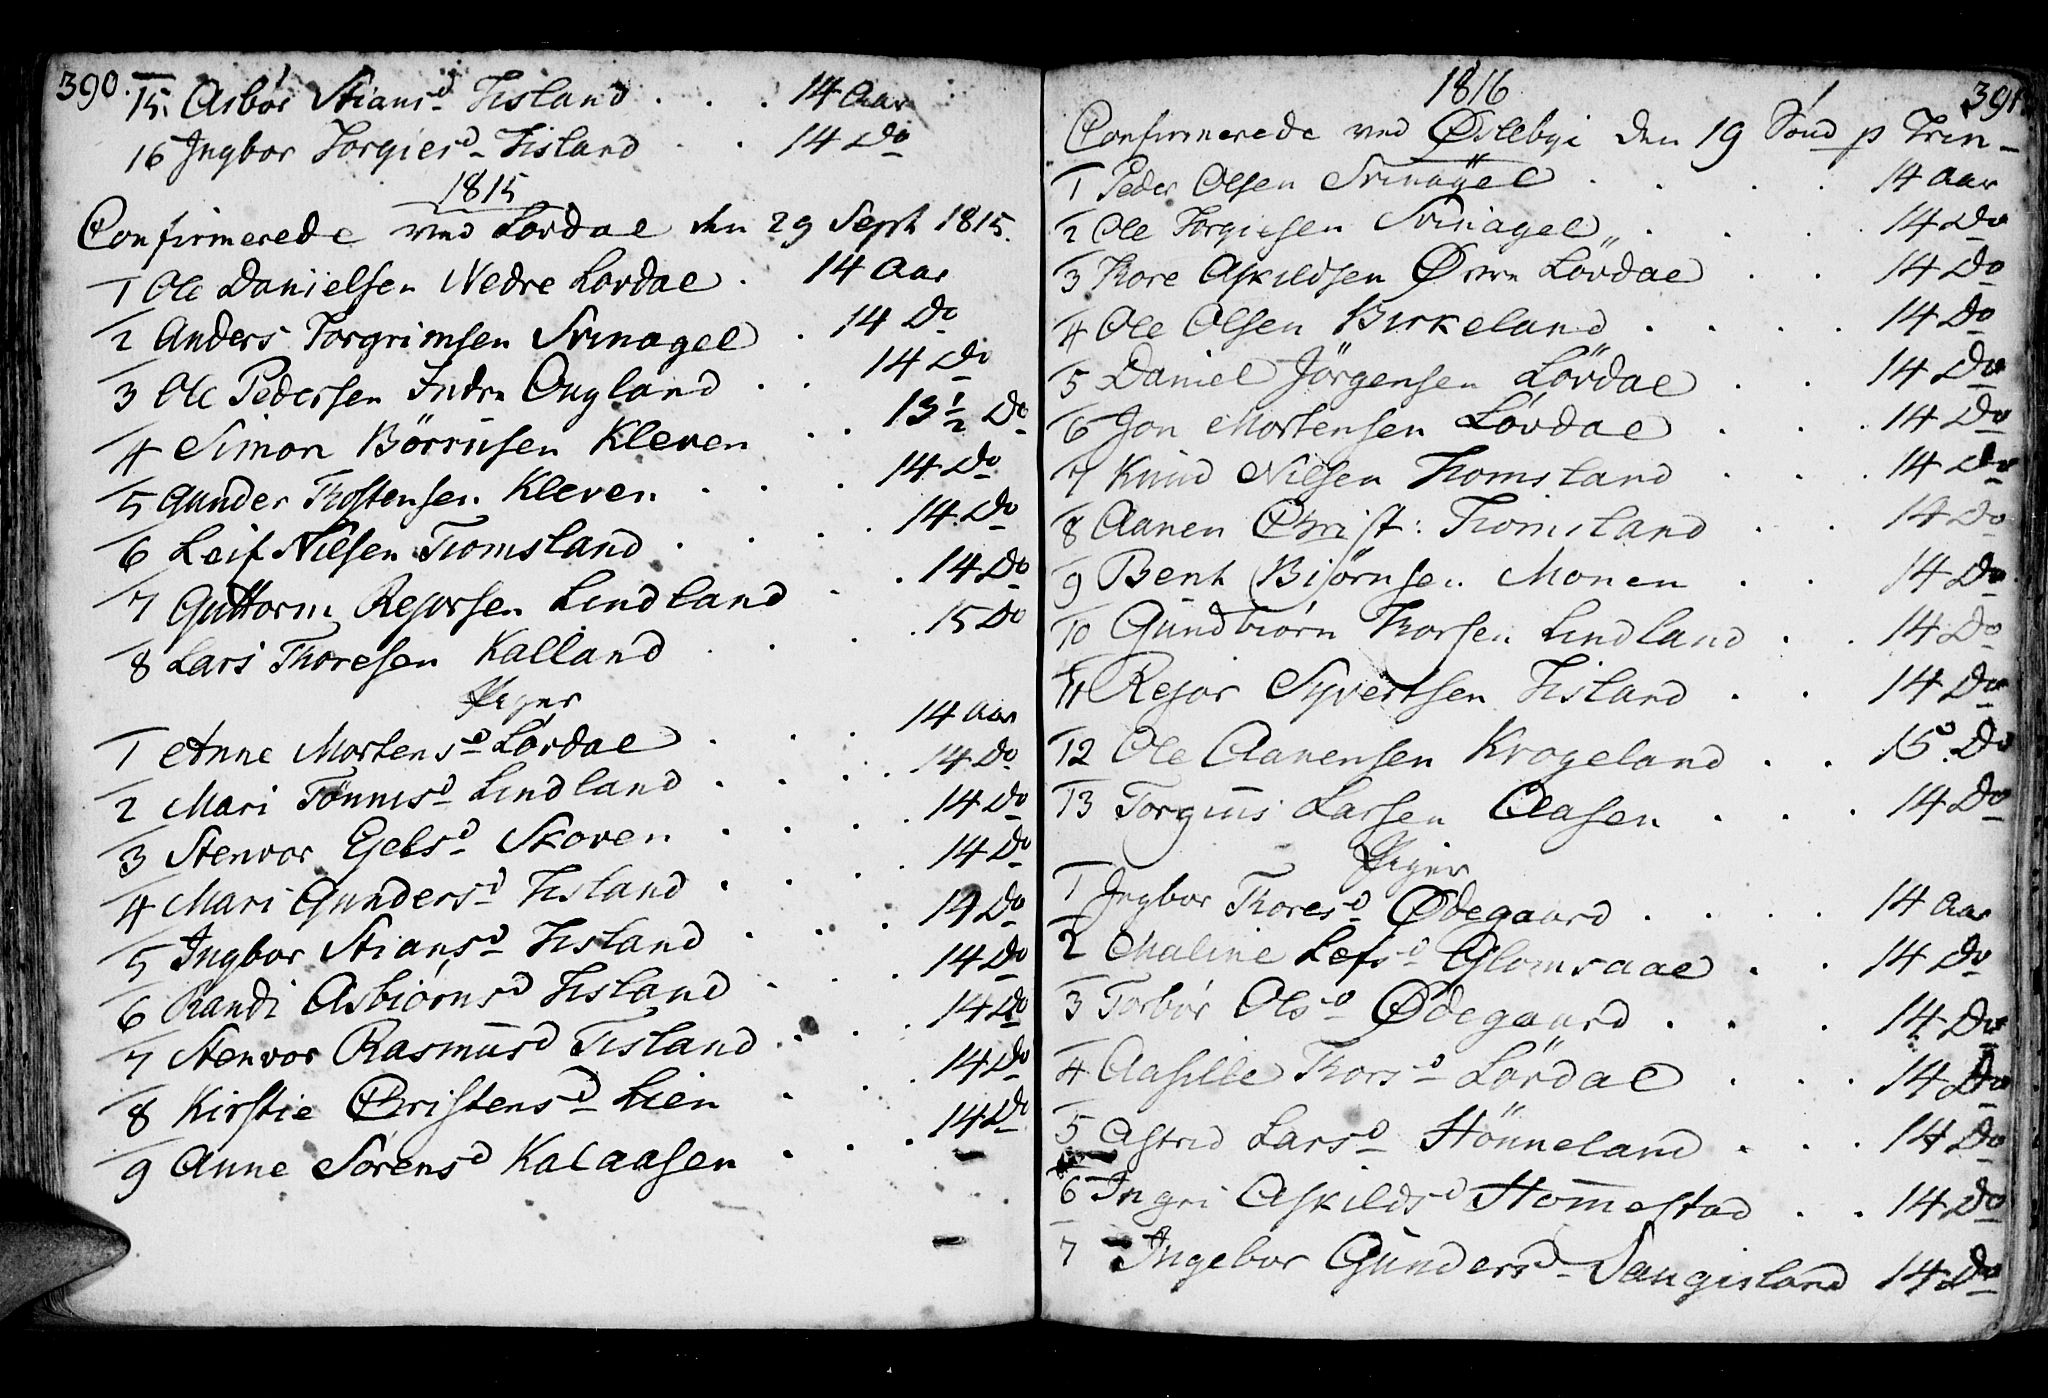 390.
15. Asbør Stiansd. Tisland . . . 14 Aar
16 Ingbor Torgiesd. Tisland . . 14 Do
1815
Confirmerede ved Løvdal den 29 Sept 1815.
1 Ole Danielsen Nedre Løvdal . 14 Aar
2 Anders Torgrimsen Svinagel . 14 Do
3 Ole Pedersen Indre Ougland . . 14 Do
4 Simon Börruisen Kleven . . 13½ Do
5 Gunder Thostensen Kleven . . . 14 Do
6 Leif Nilsen Tromsland . . . . 14 Do
7 Guttorm Rejersen Lindland . . 14 Do
8 Lars Thoresen Kalland . . . . 15 Do
Piger
1 Anne Mortensd Løvdal . . . 14 Aar
2 Mari Tönnisd Lindland . . . . 14 Do
3 Stenvor Gelsd Skoven . . . . 14 Do
4 Mari Gundersd Tisland . . . . 14 Do
5 Ingbor Stiansd Tisland . . . 14 Do
6 Randi Asbiørnsd Tisland . . . 14 Do
7 Stenvor Rasmusd Tisland . . . . 14 Do
8 Kirstie Christensd Lien . . . 14 Do
9 Anne Sørensd Kalaasen . . . 14 Do
391
1816
Confirmerede ved Øslebye den 19 Sønd p Trin
1 Peder Olsen Svinagel . . . . 14 Aar
2 Ole Torgiusen Svinagel . . . . 14 Do
3 Thore Askildsen Øvre Lövdal . . 14 Do
4 Ole Olsen Birkeland . . . . 14 Do
5 Daniel Jörgensen Lövdal . . 14 Do
6 Jon Mortensen Løvdal . . . 14 Do
7 Knud Nilsen Tromsland . . . 14 Do
8 Aanen Christ: Tromsland . . 14 Do
9 Bent Biörnsen Monen . . 14 Do
10 Gundbiørn Thorsen Lindland . . 14 Do
11 Rejor Syvertsen Tisland . . 14 Do
12 Ole Aanensen Krogeland . . 15. Do
13 Torgius Larsen Aasen . . . 14 Do
Piger
1 Ingbor Thoresd Ødegaard . . . . 14 Aar
2 Maline Lefsd Glomsaae . . 14 Do
3 Torbør Olsd Ødegaard . . . 14 Do
4 Aasille Thorsd Lövdal . . . 14 Do
5 Astrid Larsd Hönneland . . . 14 Do
6 Ingri Askildsd Homestad . . 14 Do
7 Ingebor Gundersd Saugisland 14 Do